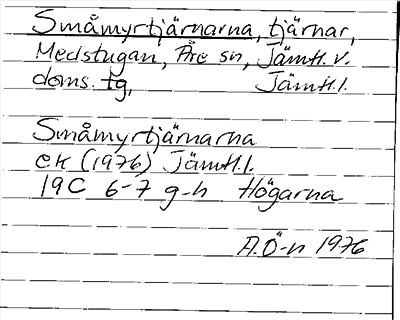 Småmyrtjärnarna, tjärnar,
Medstugan, Åre sn, Jämtl. v.
doms. tg, Jämtl.l.
Småmyrtjärnarna
ek (1976) Jämtl.l.
19C 6-7 g-h Högarna
A.Ö-n 1976